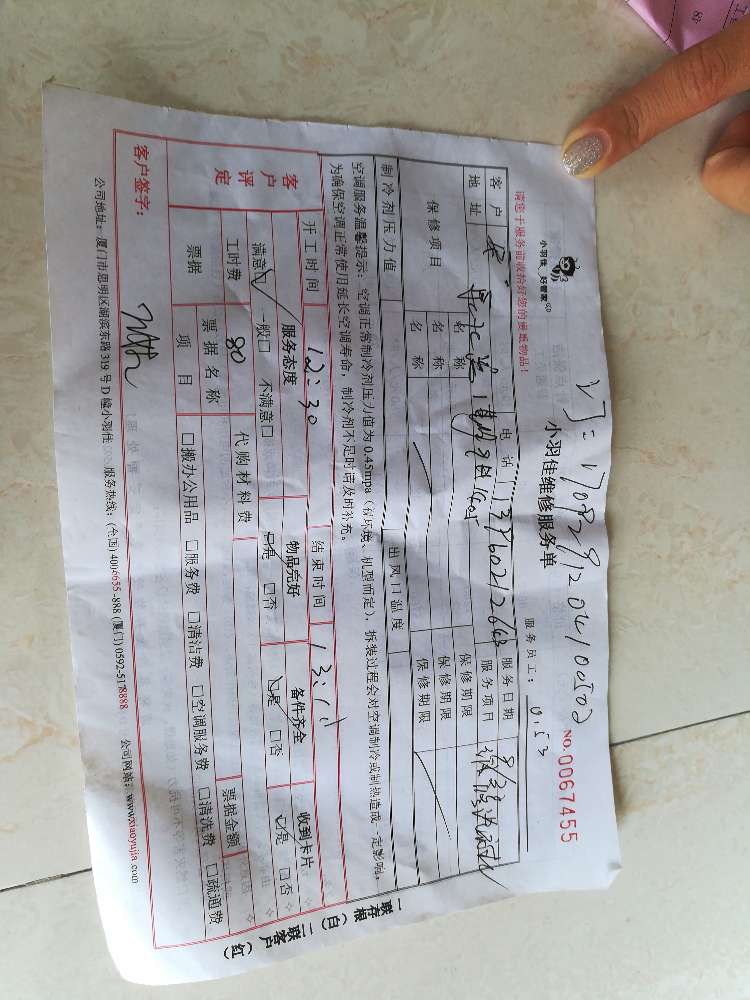 VJ=170829120410050
小羽佳 好管家
小羽佳维修服务单
NO. 0067455
请您于服务前收拾好您的贵重物品！
服务员工： 0153
客户 电话 服务日期
地址 服务项目
保修项目 名称 保修期限
名称 保修期限
名称 保修期限
制冷剂压力值 出风口温度
空调服务温馨提示：空调正常制冷剂压力值为0.45mpa（看环境、机型而定），拆装过程会对空调制冷或制热造成一定影响，
为确保空调正常使用延长空调寿命，制冷剂不足时请及时补充。
开工时间 12:30 结束时间
客户评定 服务态度 物品完好 备件齐全 收到卡片
满意☑ 一般□ 不满意□ ☑是 □否 ☑是 □否 ☑是 □否
工时费 80 代购材料费
票据 票据名称 票据金额
项目 □搬办公用品 □服务费 □清洁费 □空调服务费 □清洗费 □疏通费
客户签字：
公司地址：厦门市思明区湖滨东路319号D幢小羽佳 服务热线：(全国) 4006655-888 (厦门) 0592-5178888 公司网站：www.xiaoyujia.com
一联存根（白）二联客户（红）